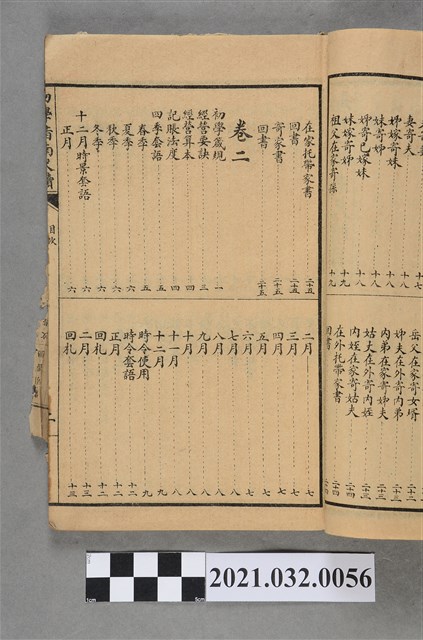 妻寄夫 十七
姊嫁寄妹 十八
妹寄姊 十八
姊寄已嫁妹 十八
妹嫁寄姊 十九
祖父在家寄孫 十九
岳父在家寄女壻 二十二
姊夫在外寄內弟
內弟在家寄姊夫 二十三
姑丈在外寄內姪 二十三
內姪在家寄姑夫 二十四
在外托帶家書 二十四
回書
在家托帶家書 二十五
回書 二十五
寄家書 二十五
回書 二十五
卷二
初學歲規 一
經營要訣 三
經營算本 四
記賬法度 四
四季套語 五
春季 五
夏季 五
秋季 六
冬季 六
十二月時景套語 六
正月 六
二月 七
三月 七
四月 七
五月 七
六月 七
七月 八
八月 八
九月 八
十月 八
十一月 八
十二月 九
時令便用 九
時令套語 十二
正月 十二
回札 十二
二月 十三
回札 十三
目次
2021.032.0056